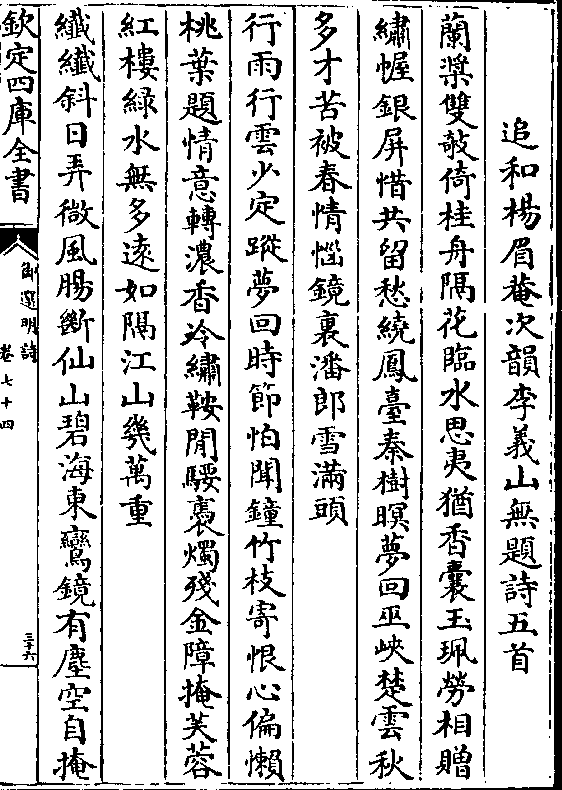 追和楊眉菴次韻李義山無題詩五首
蘭槳雙敧倚桂舟隔花臨水思夷猶香囊玉珮勞相贈
繡幄銀屏惜共留愁繞鳳臺秦樹暝夢回巫峽楚雲秋
多才苦被春情惱鏡裏潘郎雪滿頭
行雨行雲少定蹤夢回時節怕聞鐘竹枝寄恨心偏懶
桃葉題情意轉濃香冷繡鞍閒騕褭燭殘金障掩芙蓉
紅樓綠水無多遠如隔江山幾萬重
纖纖斜日弄微風腸斷仙山碧海東鸞鏡有塵空自掩
欽定四庫全書
御選明詩
卷七十四
三十六